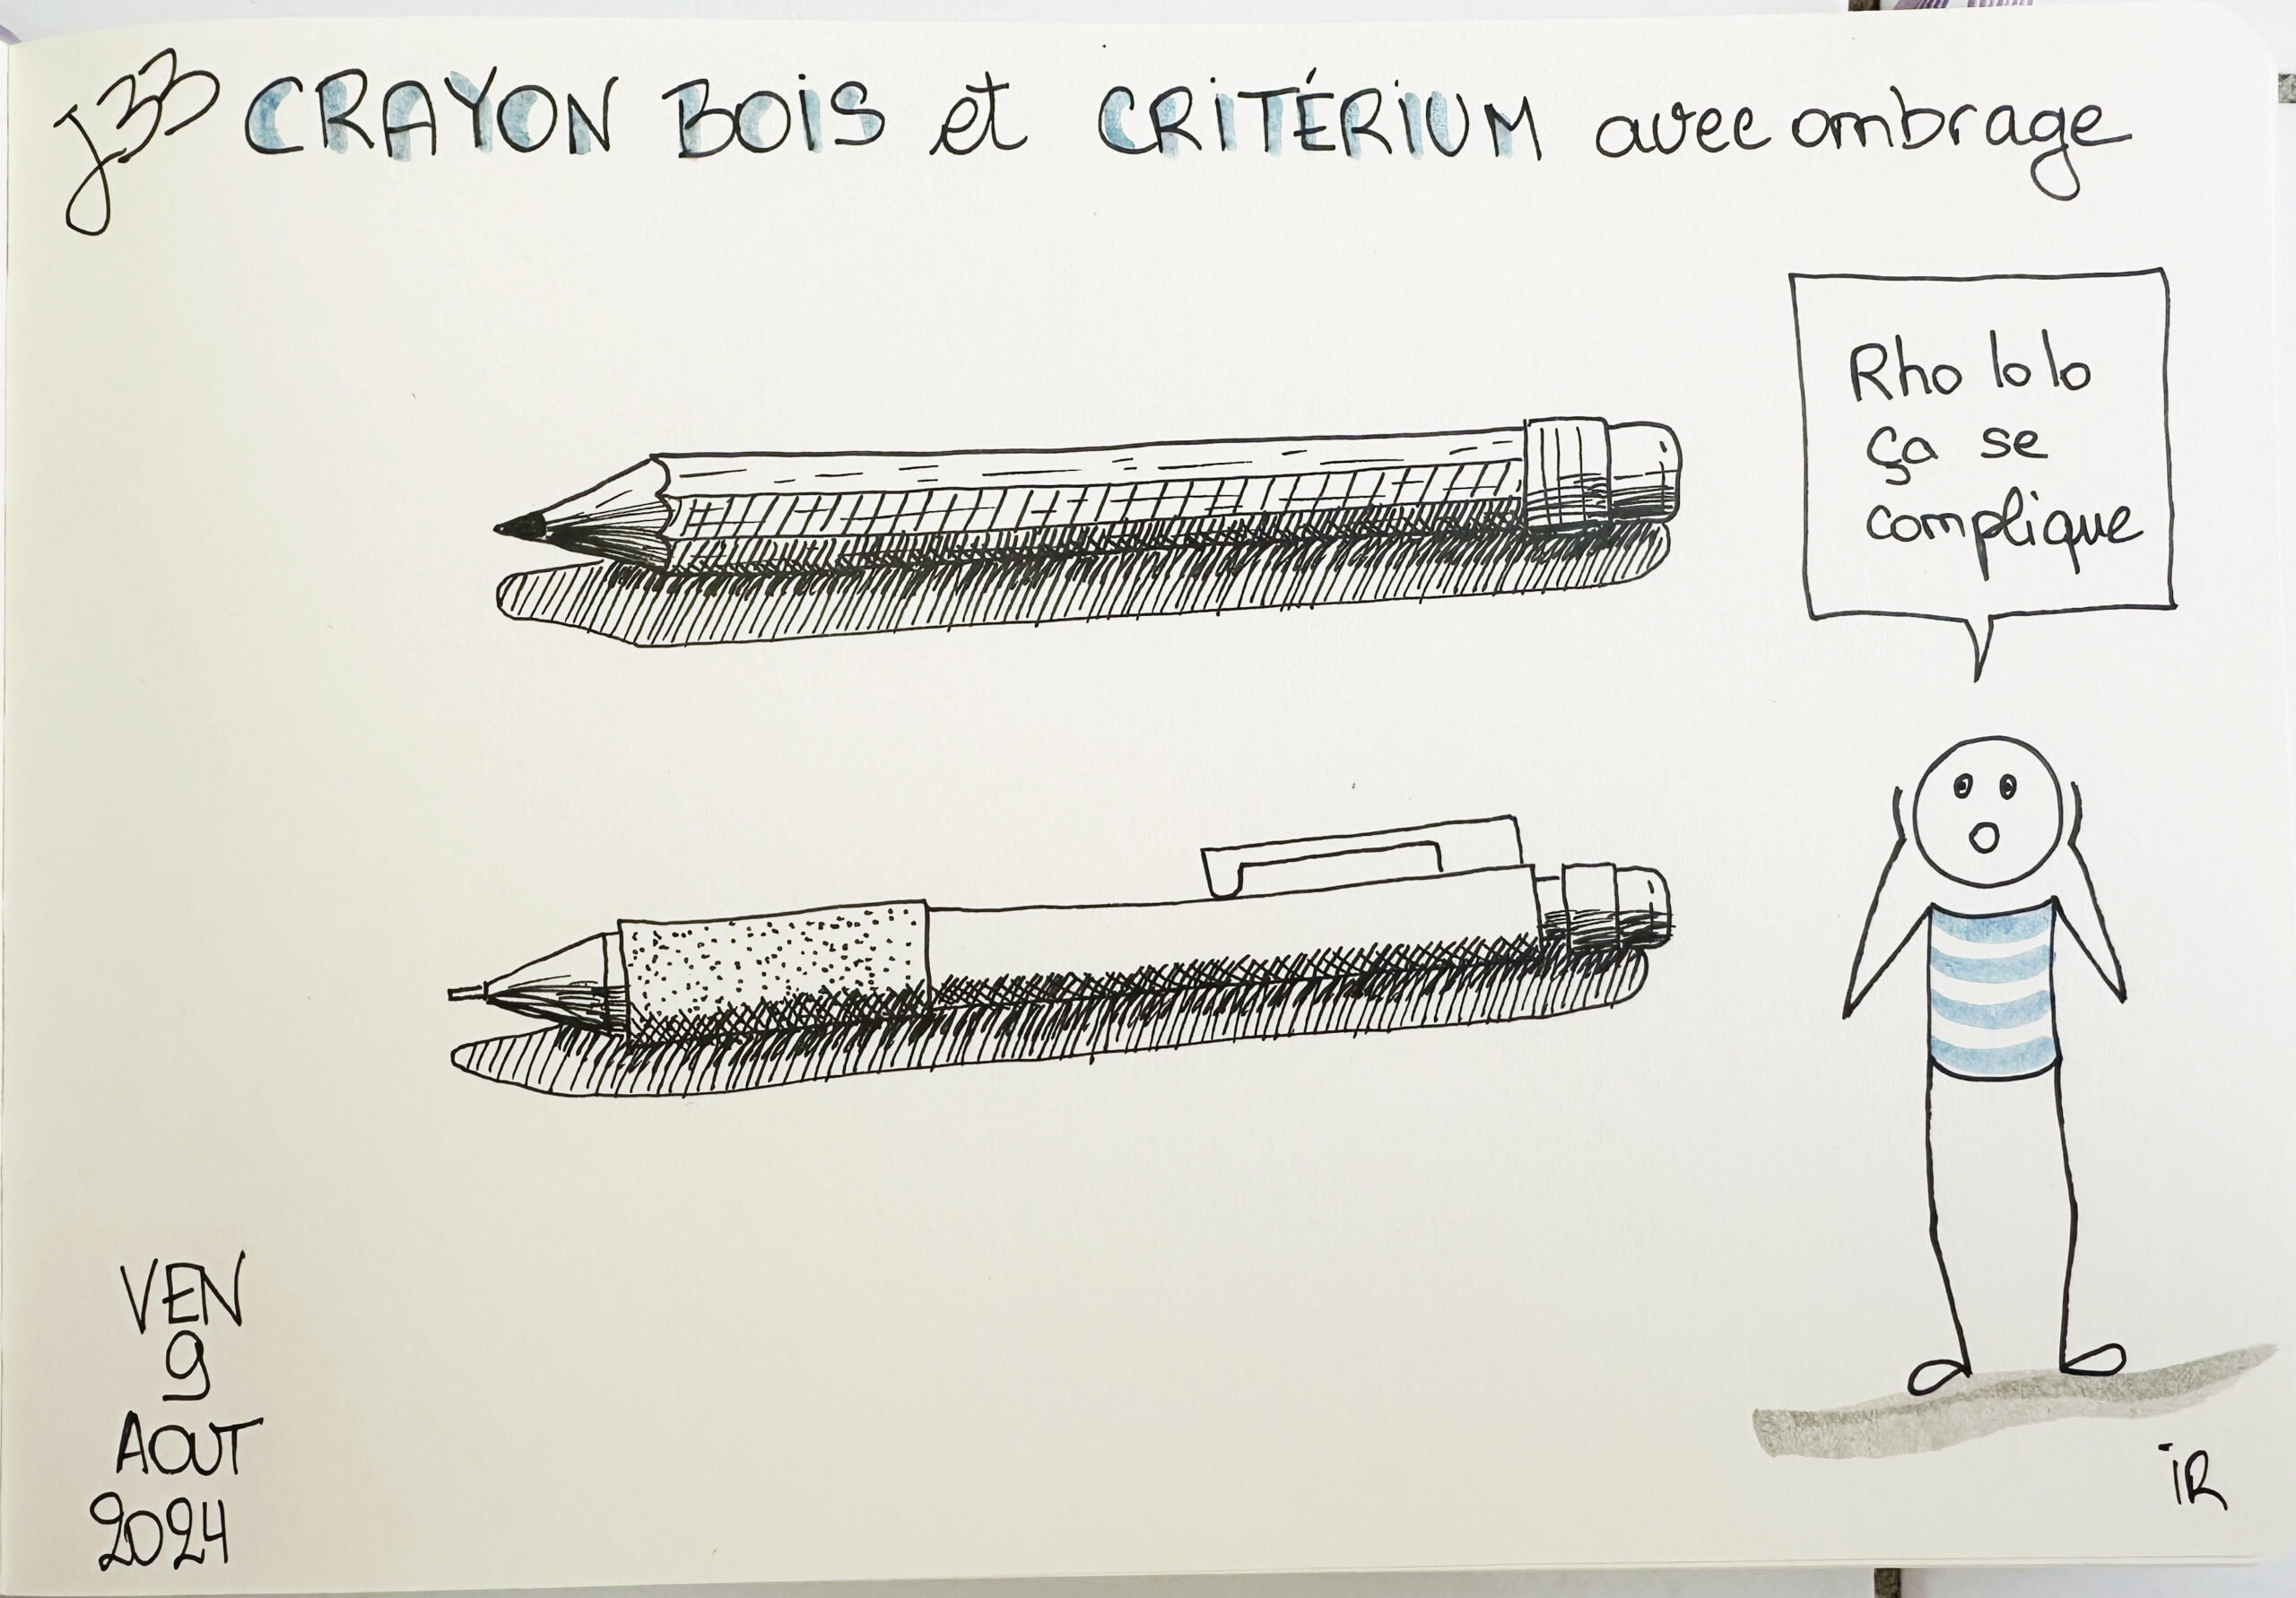 J33 CRAYON BOiS et CRiTÉRiUM avec ombrage
Rho lo lo
ça se
complique
VEN
9
AOUT
2024
iR